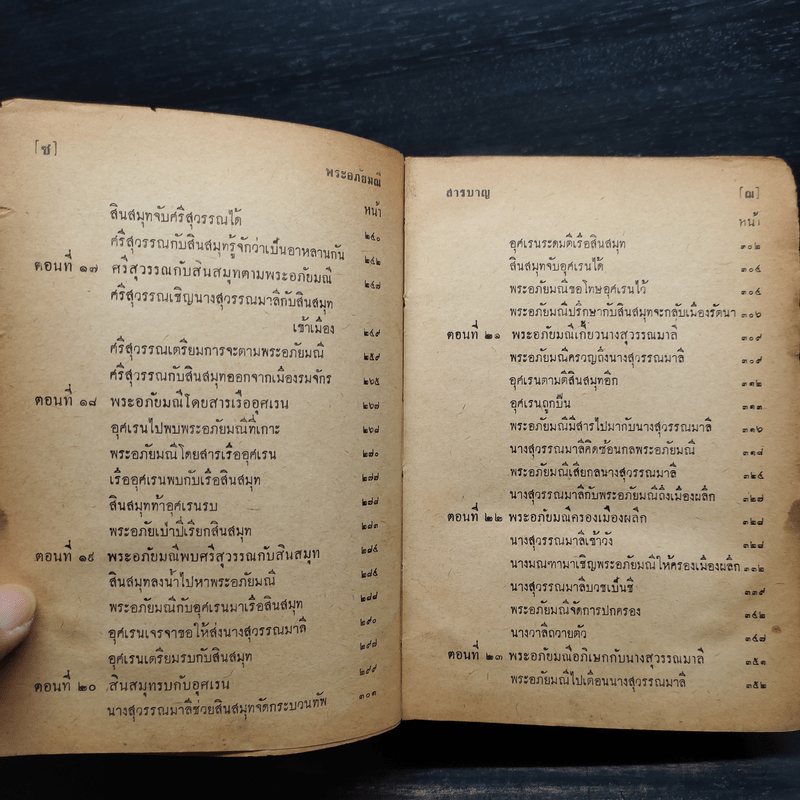 [ซ]
พระอภัยมณี
หน้า
สินสมุทจับศรีสุวรรณได้ ๒๔๐
ศรีสุวรรณกับสินสมุทรู้จักว่าเป็นอาหลานกัน ๒๔๒
ตอนที่ ๑๗ ศรีสุวรรณกับสินสมุทตามพระอภัยมณี ๒๔๗
ศรีสุวรรณเชิญนางสุวรรณมาลีกับสินสมุท
เข้าเมือง ๒๔๙
ศรีสุวรรณเตรียมการจะตามพระอภัยมณี ๒๕๙
ศรีสุวรรณกับสินสมุทออกจากเมืองรมจักร ๒๖๕
ตอนที่ ๑๘ พระอภัยมณีโดยสารเรืออุศเรน ๒๖๗
อุศเรนไปพบพระอภัยมณีที่เกาะ ๒๖๘
พระอภัยมณีโดยสารเรืออุศเรน ๒๗๐
เรืออุศเรนพบกับเรือสินสมุท ๒๗๗
สินสมุทท้าอุศเรนรบ ๒๗๘
พระอภัยเป่าปี่เรียกสินสมุท ๒๘๓
ตอนที่ ๑๙ พระอภัยมณีพบศรีสุวรรณกับสินสมุท ๒๘๕
สินสมุทลงน้ำไปหาพระอภัยมณี ๒๘๕
พระอภัยมณีกับอุศเรนมาเรือสินสมุท ๒๘๘
อุศเรนเจรจาขอให้ส่งนางสุวรรณมาลี ๒๙๐
อุศเรนเตรียมรบกับสินสมุท ๒๙๗
ตอนที่ ๒๐ สินสมุทรบกับอุศเรน ๒๙๙
นางสุวรรณมาลีช่วยสินสมุทจัดกระบวนทัพ ๓๐๑
สารบาญ
[ฌ]
หน้า
อุศเรนระดมตีเรือสินสมุท ๓๐๒
สินสมุทจับอุศเรนได้ ๓๐๔
พระอภัยมณีขอโทษอุศเรนไว้ ๓๐๕
พระอภัยมณีปรึกษากับสินสมุทจะกลับเมืองรัตนา ๓๐๖
ตอนที่ ๒๑ พระอภัยมณีเกี้ยวนางสุวรรณมาลี ๓๐๙
พระอภัยมณีครวญถึงนางสุวรรณมาลี ๓๐๙
อุศเรนตามตีสินสมุทอีก ๓๑๒
อุศเรนถูกปืน ๓๑๓
พระอภัยมณีมีสารไปมากับนางสุวรรณมาลี ๓๑๖
นางสุวรรณมาลีคิดซ้อนกลพระอภัยมณี ๓๑๘
พระอภัยมณีเสียกลนางสุวรรณมาลี ๓๒๕
นางสุวรรณมาลีกับพระอภัยมณีถึงเมืองผลึก ๓๒๗
ตอนที่ ๒๒ พระอภัยมณีครองเมืองผลึก ๓๒๘
นางสุวรรณมาลีเข้าวัง ๓๒๘
นางมณฑามาเชิญพระอภัยมณีให้ครองเมืองผลึก ๓๓๒
นางสุวรรณมาลีบวชเป็นชี ๓๓๙
พระอภัยมณีจัดการปกครอง ๓๔๒
นางวาลีถวายตัว ๓๔๗
ตอนที่ ๒๓ พระอภัยมณีอภิเษกกับนางสุวรรณมาลี ๓๕๑
พระอภัยมณีไปเตือนนางสุวรรณมาลี ๓๕๒